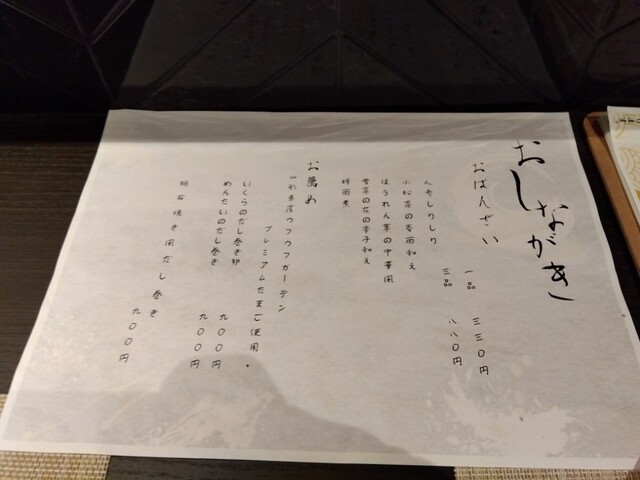 おしながき
おばんざい
一品 三三〇円
三品 八八〇円
人参しりしり
小松菜の香雨和え
ほうれん草の中華風
菜の花の辛子和え
時雨煮
お薦め
山形県産ウフウフガーデン
プレミアムたまご使用。
いくらのだし巻き卵 九〇〇円
めんたいのだし巻き 九〇〇円
明石焼き風だし巻き 九〇〇円